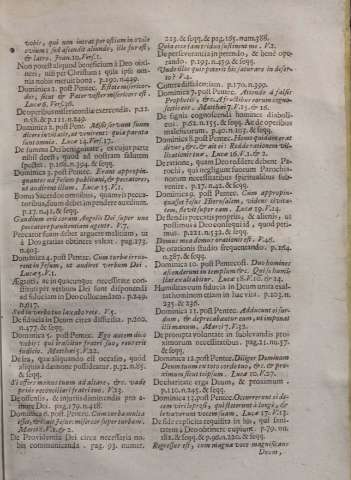 vobis, qui non intrat per ostium in ovile
ovium: sed ascendit aliunde, ille fur est,
& latro. Ioan.10. Vers.1.
Non potest aliquod beneficium à Deo obti-
neri, nisi per Christum: quia ipse om-
nia nobis meruit bona. p.190. n.439.
Dominica 1. post Pentec. Estote misericor-
des; sicut & Pater vester misericors est.
Lucæ 6. Vers.36.
De operibus misericordiæ exercendis. p.22.
n.58. & p.211. n.249.
Dominica 2. post Pent. Misit servum suum
dicere invitatis, ut venirent: quia parata
sunt omnia. Lucæ 14. Vers.17.
De summa Dei benignitate, ex cujus parte
nihil deest, quod ad nostram salutem
spectet. p.166. n.394. & seqq.
Dominica 3. post Pentec. Erant appropin-
quantes ad Iesum publicani, & peccatores,
ut audirent illum. Lucæ 15. V.1.
Bonus Sacerdos omnibus, quamvis pecca-
toribus, suum debet impendere auxilium.
p.17. n.41. & seqq.
Gaudium erit coram Angelis Dei super uno
peccatore pœnitentiam agente. V.7.
Peccator suum debet arguere malitiam, ut
à Deo gratias obtinere valeat. pag.173.
n.403.
Dominica 4. post Pentec. Cum turbæ irrue-
rent in Iesum, ut audirent verbum Dei.
Lucæ 5. V.1.
Ægroti, ac in quocunque necessitate con-
stituti per verbum Dei sunt disponendi
ad fiduciam in Deo collocandam. p.249.
n.617.
Sed in verbo tuo laxabo rete. V.5.
De fiducia in Deum circa difficilia. p.200.
n.477. & seqq.
Dominica 5. post Pentec. Ego autem dico
vobis: qui irascitur fratri suo, reus erit
judicio. Matthæi 5. V.22.
De ira, quæ aliquando est occasio, quod
aliquis à dæmone possideatur. p.32. n.85.
& seqq.
Si offers munus tuum ad altare, &c. vade
prius reconciliari fratri tuo. V.23.
De offensis, & injuriis dimittendis pro a-
more Dei. pag.179. n.418.
Dominica 6. post Pentec. Cum turba multa
esset, &c. ait Iesus: misereor super turbam.
Marci 8. V.1. & 2.
De Providentia Dei circa necessaria no-
bis communicanda. pag. 93. numer.
223. & seqq. & pag.165. nam.388.
Quia ecce jam triduo sustinent me. V.2.
De perseverantia in petendo, & benè ope-
rando. p.193. n.459. & seqq.
Unde illos quis poterit hic saturare in deser-
to? V.4.
Contra diffidentiam. p.170. n.399.
Dominica 7. post Pentec. Attendite à falsis
Prophetis, &c. A fructibus eorum cogno-
scetis eos. Matthæi 7. V.15. & 16.
De signis cognoscendis homines diaboli-
cos. p.62. n.155. & seqq. Ac de operibus
maleficorum. p.40. n.103. & seqq.
Dominica 8. post Pentec. Homo quidam erat
dives, &c. & ait ei: Redde rationem vil-
licationis tuæ. Lucæ 16. V.1. & 2.
De ratione, quam Deo reddere debent Pa-
rochi, qui negligunt suorum Parochia-
norum necessitatibus spiritualibus sub-
venire. p.17. n.42. & seqq.
Dominica 9. post Pentec. Cum appropin-
quasset Iesus Ierusalem, videns civita-
tem, flevit super eam. Lucæ 19. V.41.
De flendis peccatis propriis, & alienis, ut
possimus à Deo consequi id, quod peti-
mus. p.221. n.532. & seqq.
Domus mea domus orationis est. V.46.
De orationis studio frequentando. p.164.
n.387. & seqq.
Dominica 10. post Pentecost. Duo homines
ascenderunt in templum &c. Qui se humili-
at exaltabitur. Lucæ 18. V.10. & 14.
Humiliatio cum fiducia in Deum unita exal-
tat hominem etiam in hac vita. p.103. n.
235. & 236.
Dominica 11. post Pentec. Adducunt ei sur-
dum, & deprecabantur eum, ut imponat
illi manum. Marci 7. V.32.
De prompta voluntate in sublevandis pro-
ximorum necessitatibus. pag.21. n.57.
& seqq.
Dominica 12. post Pentec. Diliges Dominum
Deum tuum ex toto corde tuo, &c. & pro-
ximum sicut teipsum. Lucæ 10. V.27.
De charitate erga Deum, & proximum.
p.110. n.245. & seqq.
Dominica 13. post Pentec. Occurrerunt ei de-
cem viri leprosi, qui steterunt à longè, &
levaverunt vocem suam. Lucæ 17. V.12.
De fide explicita requisita in his, qui sani-
tatem à Deo obtinere cupiunt. p.79. nu.
182. & seqq. & p.90. n.220. & seqq.
Regressus est, cum magna voce magnificans
Deum,